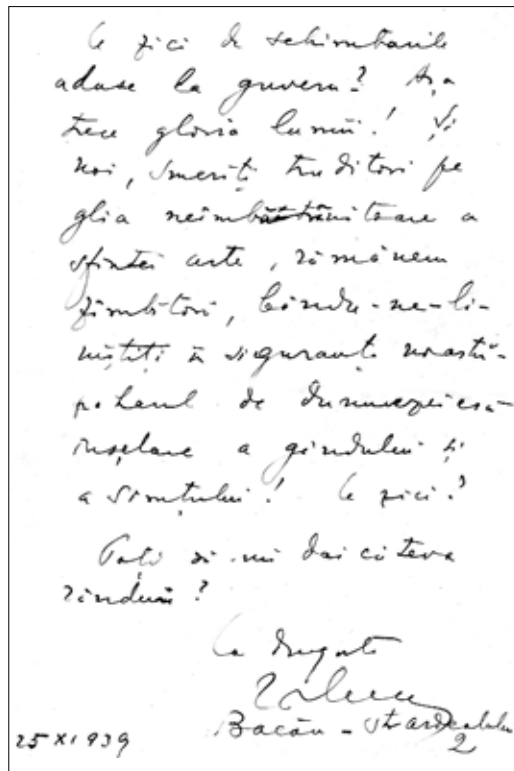 Ce zici de schimbările
aduse la guvern? Așa
trece gloria lumii! Și
noi, smeriți truditori pe
glia neîmbătrânitoare a
sfintei arte, rămânem
zîmbitori, bîndu-ne-li-
niștiți în siguranța noastră-
paharul de dumnezeiesă
înșelare a gîndului și
a simțului! Ce zici?
Poți să-mi dai cîteva
rînduri?
Cu dragoste
Bacău - str. Ardealului
2
25 XI 939